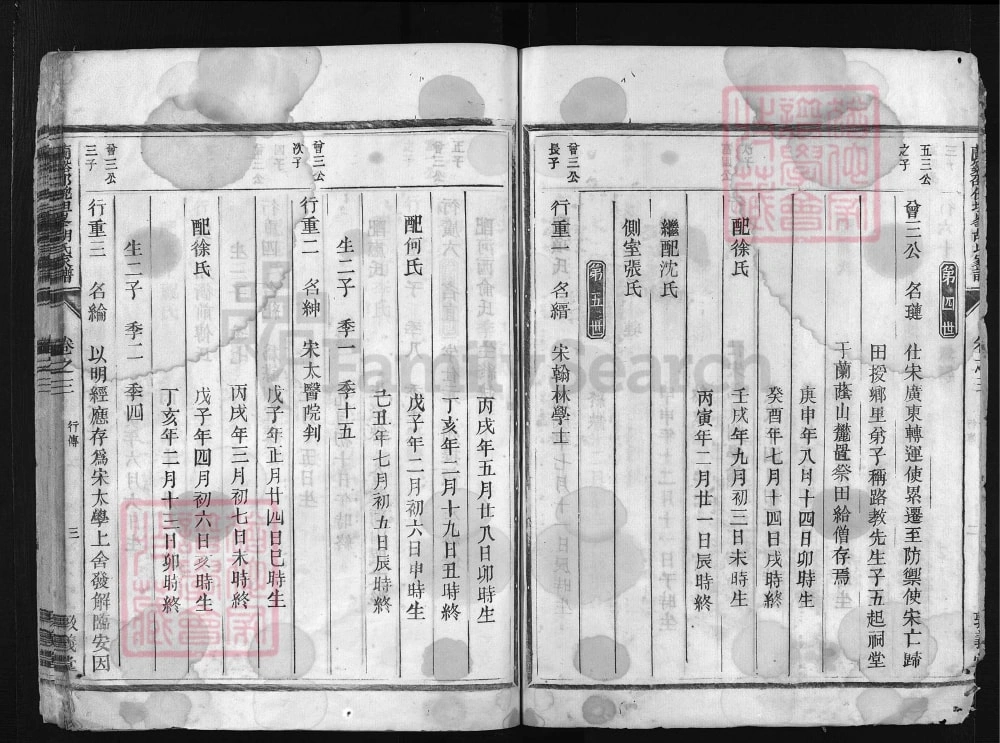 第四世
五三公
之子
曾三公 名璉 仕宋廣東轉運使累遷至防禦使宋亡歸
田援鄉里弟子稱路教先生子五起祠堂
于蘭蔭山麓置祭田給僧存焉
庚申年八月十四日卯時生
癸酉年七月十四日戌時終
配徐氏
壬戌年九月初三日未時生
丙寅年二月廿一日辰時終
繼配沈氏
側室張氏
第五世
曾三公
長子
行重一 名縉 宋翰林學士
丙戌年五月廿八日卯時生
丁亥年二月十九日丑時終
配何氏
戊子年二月初六日申時生
己丑年七月初五日辰時終
生二子 季一 季十五
曾三公
次子
行重二 名紳 宋太醫院判
戊子年正月廿四日巳時生
丙戌年三月初七日未時終
配徐氏
戊子年四月初六日亥時生
丁亥年二月十三日卯時終
生二子 季二 季四
曾三公
三子
行重三 名綸 以明經應存為宋太學上舍發解臨安因
卷之三
行傳
三
敦義堂
FamilySearch